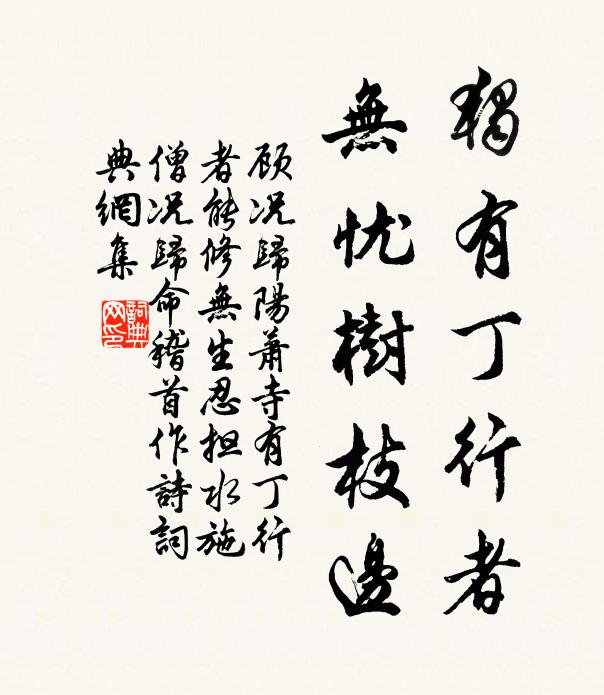 獨有丁行者
無忧樹枝邊
顾况歸陽蕭寺有丁行
者能修無生忍担水施
僧况歸命稽首作詩詞
典網集
詞典网印